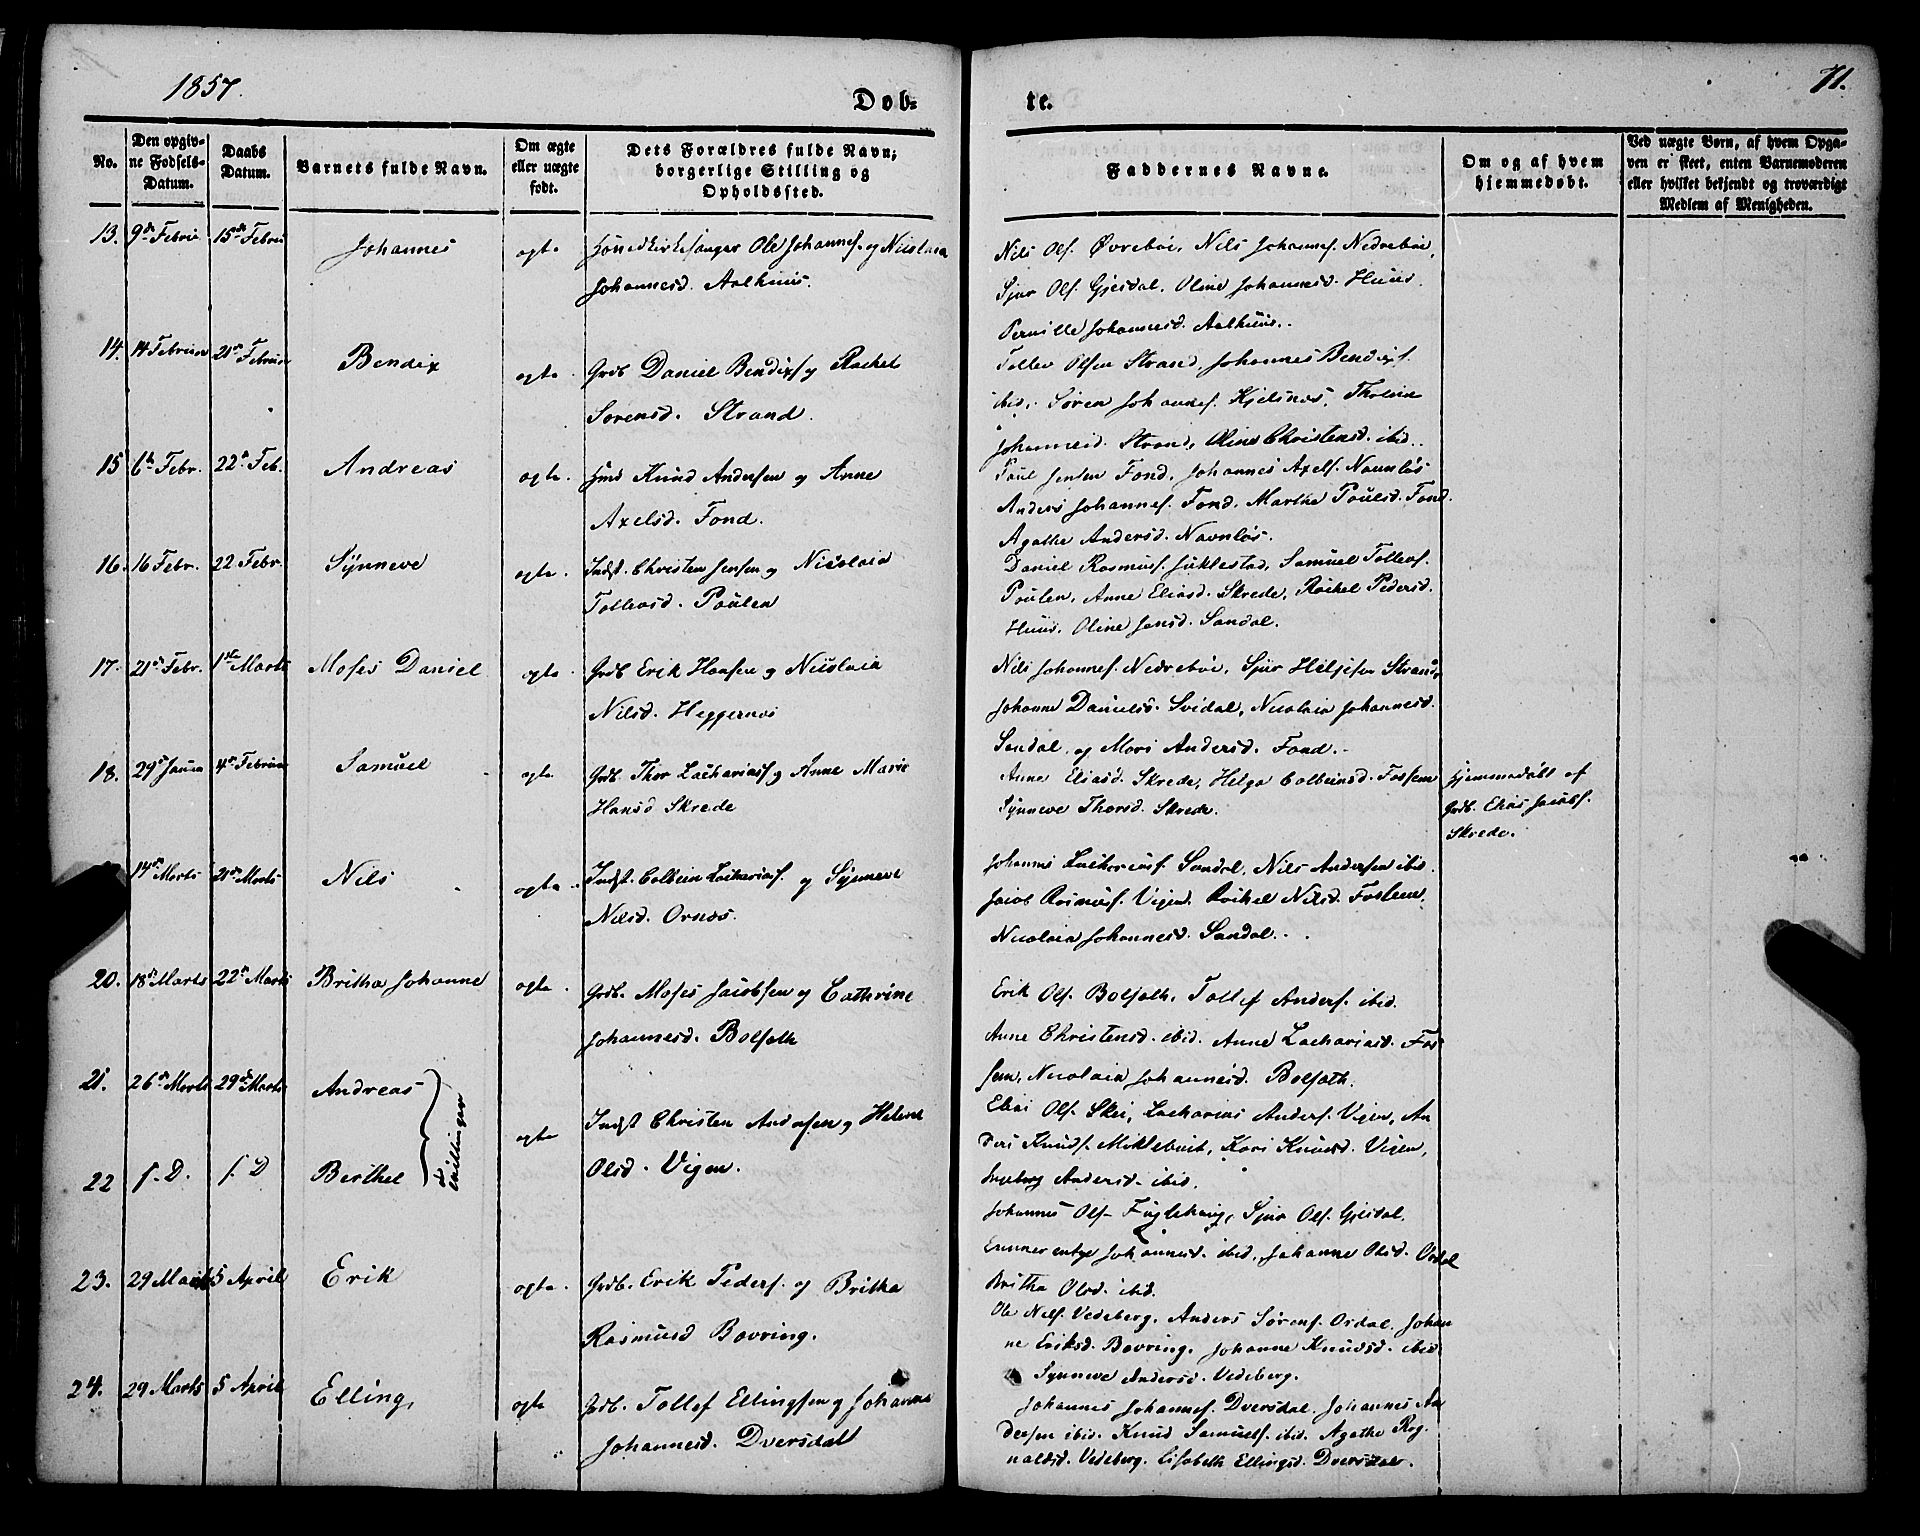 1857.
Døb-
te.
71.
No.
Den opgiv-
ne Fødsels-
Datum.
Daabs
Datum.
Barnets fulde Navn.
Om ægte
eller uægte
født.
Dets Forældres fulde Navn,
borgerlige Stilling og
Opholdssted.
Faddernes Navne.
Om og af hvem
hjemmedøbt.
Ved uægte Børn, af hvem Opga-
ven er skeet, enten Barnemoderen
eller hvilket bekjendt og troværdigt
Medlem af Menigheden.
13. 9de Febru 15de Febru Johannes ægte Ole Johannes. og Nicolaia
Johannesd. Aalhuus.
Nils Ols. Øvrebøe, Nils Johannes. Nedrebøe,
Sjur Ols. Gjesdal, Oline Johannesd. Huus
Pernille Johannesd. Aalhuus.
14. 14 Februar 21de Februar Bendix ægte Grdb Daniel Bendixs og Rachel
Sørensd. Strand.
Tollev Olsen Strand, Johannes Bendixs.
ibid, Søren Johannes. Kjelsnes,
Johannesd. Strand, Oline Christensd. ibid.
15 6te Febr. 22de Feb. Andreas ægte. Hmd Knud Andersen og Anne
Axelsd. Fond.
Poul Jensen Fond, Johannes Axels. Navnløs
Anders Johannes. Fond, Marthe Poulsd. Fond.
Agathe Andersd. Navnløs.
16. 16 Febr. 22 Febr. Synneve ægte. Indst. Christen Jensen og Nicolaia
Tollevsd. Poulen
Daniel Rasmus. Juklestad, Samuel Tollevs.
Poulen, Anne Eliasd. Skrede, Rachel Pedersd.
Huus, Oline Jensd. Sandal.
17. 21de Febr. 1ste Marts Moses Daniel ægte. Grdb Erik Hansen og Nicolaia
Nilsd. Heggernæs
Nils Johannes. Nedrebøe, Sjur Helgesen Strand,
Johanne Danielsd. Svidal, Nicolaia Johannesd.
Sandal, og Mari Andersd. Fond.
18. 29de Janua 4de Februar Samuel ægte Grdb. Thor Zachariass og Anne Marie
Hansd Skrede
Anne Eliasd. Skrede, Helga Colbeinsd. Fossem
Synneve Thorsd. Skrede.
Hjemmedøbt af
Grdb. Elias Jacobs.
Skrede.
14de Marts 21de Marts Nils ægte Indst. Colbein Zacharias. og Synneve
Nilsd. Ornæs.
Johannes Zacharias. Sandal, Nils Andersen ibid.
Jacob Rasmus. Vigen, Rachel Nilsd. Fossem,
Nicolaia Johannesd. Sandal.
20. 18de Marts 22de Marts Britha Johanne ægte. Grdb. Moses Jacobsen og Cathrine
Johannesd. Bolsæth
Erik Ols. Bolsæth, Tollef Anders. ibid.
Anne Christensd. ibid. Anne Zachariasd. Fos
sem, Nicolaia Johannesd. Bolsæth.
21. 26de Marts 29de Marts Andreas
Tvillinger
ægte Indst Christen Andersen og Helene
Olsd. Vigen.
Elias Ols. Skei, Zacharias Anders. Vigen, An
ders Knuds. Myklebust, Kari Knudsd. Vigen,
Ingeborg Andersd. ibid.
22 s. D. s. D Berthel
Johannes Ols. Fuglehaug, Sjur Ols. Gjesdal,
Emmerentze Johannesd. ibid, Johanne Olsd. Ordal
Britha Olsd. ibid.
23. 29 Marts 5 April Erik ægte. Grdb. Erik Peders. og Britha
Rasmusd Bovring.
Ole Nils. Vedeberg, Anders Sørens. Ordal, Johan
ne Eriksd. Bovring, Johanne Knudsd. ibid
Synneve Andersd. Vedeberg.
24. 29 Marts 5 April Elling, ægte Grdb. Tollef Ellingsen og Johanne
Johannesd. Dversdal
Johannes Johannes. Dversdal, Johannes An
dersen ibid, Knud Samuels. ibid, Agathe Rag
naldsd. Vedeberg, Lisabeth Ellingsd. Dversdal.